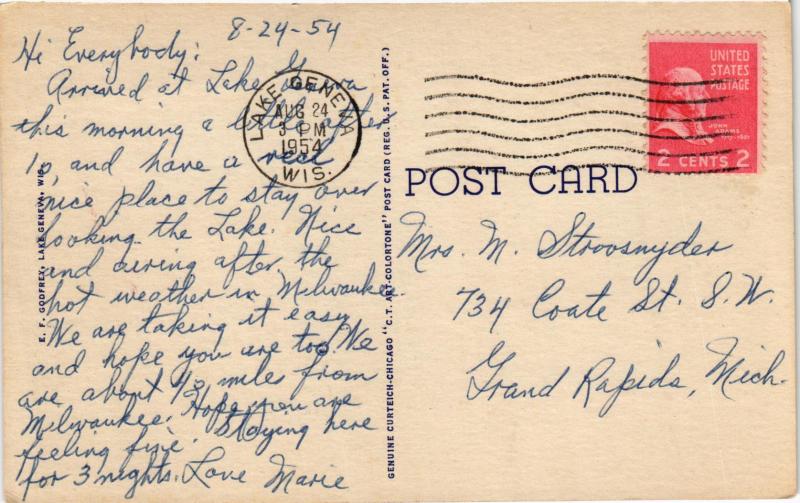 8-24-54
Hi Everybody:
Arrived at Lake Geneva
this morning a little after
10, and have a real
nice place to stay over
looking the Lake. Nice
and airing after the
hot weather in Milwaukee.
We are taking it easy
and hope you are too. We
are about 40 miles from
Milwaukee. Hope you are
feeling fine. Staying here
for 3 nights. Love Marie
E. F. GODFREY, LAKE GENEVA, WIS.
LAKE GENEVA
AUG 24
3 PM
1954
WIS.
GENUINE CURTEICH-CHICAGO "C.T. ART-COLORTONE" POST CARD (REG. U.S. PAT. OFF.)
UNITED
STATES
POSTAGE
JOHN
ADAMS
2 CENTS 2
POST CARD
Mrs. M. Stroosnyder
734 Coate St. S.W.
Grand Rapids, Mich.